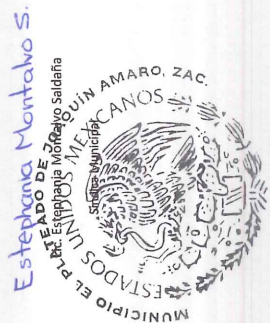 Estephania Montalvo S.
Lic. Estephania Montalvo Saldaña
Síndico Municipal
MUNICIPIO EL PLATEADO DE JOAQUIN AMARO, ZAC.
ESTADOS UNIDOS MEXICANOS